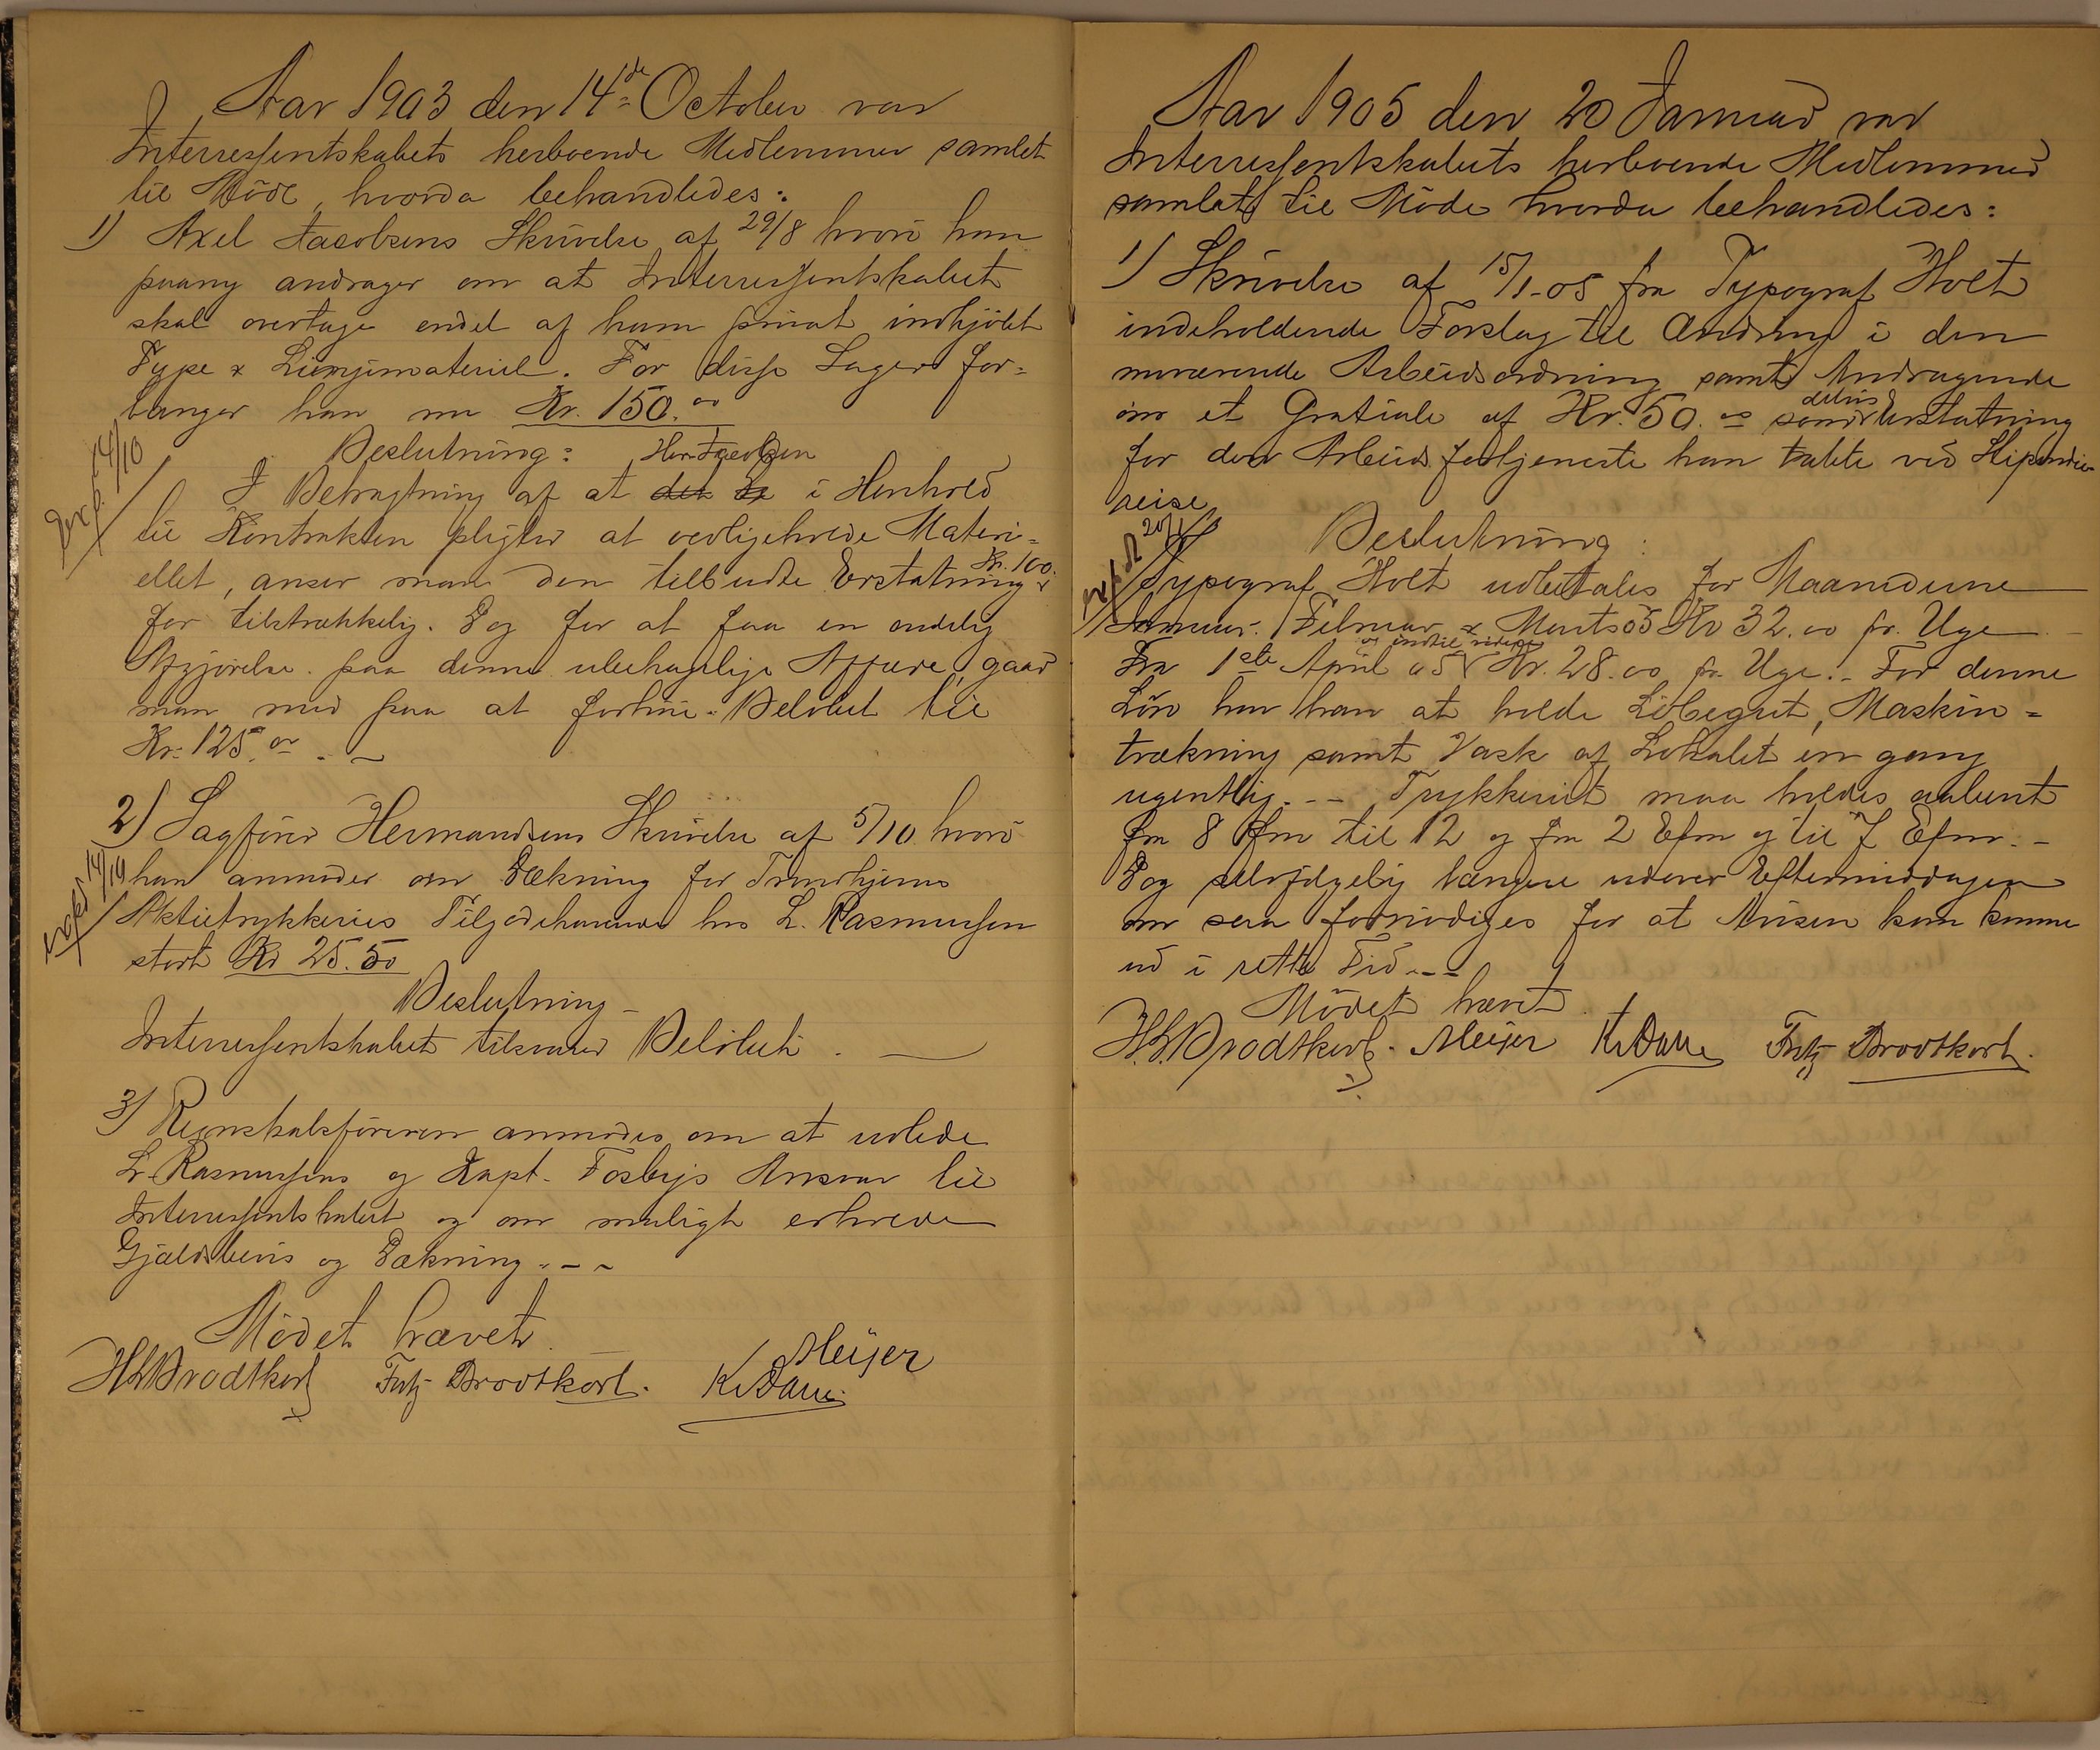 Aar 1903 den 14de October var
Interressentskabets herboende Medlemmer samlet
til Möde, hvorda behandledes:
1) Axel Jacobsens Skrivelse af 29/8 hvori han
paany andrager om at Interressentskabet
skal overtage endel af ham privat indkjöbt
Type & Linjemateriel. For disse Sager for=
langer han nu Kr. 150.00
Beslutning:
exp. 14/10
I Betragtning af at det de Herr Jacobsen i Henhold
til Kontrakten pligter at vedligeholde Materi=
ellet, anser man den tilbudte Erstatning Kr. 100.
for tilstrækkelig. Dog for at faa en endelig
Afgjörelse paa denne ubehagelige Affære, gaar
man med paa at forhöie Belöbet til
Kr. 125.00
2) Sagförer Hermandsens Skrivelse af 5/10 hvori
expd 14/10
han anmoder om Dækning for Trondhjems
Aktietrykkeries Tilgodehavende hos L. Rasmussen
stort Kr 25.50
Beslutning
Interressentskabet tilsvarer Belöbet.
3) Regnskabsföreren anmodes om at udlede
L. Rasmussens og Kapt. Fosbys Ansvar til
Interressentskabet og om muligt erhverve
Gjældsbevis og Dækning.
Mödet hævet.
Meijer
HLBrodtkorb Fritz Brodtkorb. K Daae
Aar 1905 den 20 Januar var
Interressentskabets herboende Medlemmer
samlet til Möde hvorda behandledes:
1) Skrivelse af 15/1-05 fra Typograf Holt
indeholdende Forslag til Ændring i den
nuværende Arbeidsordning samt Andragende
om et Gratiale af Kr. 50.00 som delvis Erstatning
for den Arbeidsfortjeneste han tabte ved Stipendie
reise
Beslutning:
20/1
Typograf Holt udbetales for Maanederne
Januar. Februar & Marts 05 Kr 32.00 pr. Uge
Fra 1ste April 05 og indtil videre Kr. 28.00 pr. Uge. For denne
Lön har han at holde Löbegut, Maskin=
trækning samt Vask af Lokalet en gang
ugentlig. Trykkeriet maa holdes aabent
fra 8 Fm til 12 og fra 2 Efm og til 7 Efm.
Dog selvfølgelig længere udover Eftermiddagen
om saa fornödiges for at Avisen kan komme
ud i rette Tid
Mödet hævet.
H.L.Brodtkorb. Meijer K Daae Fritz Brodtkorb.